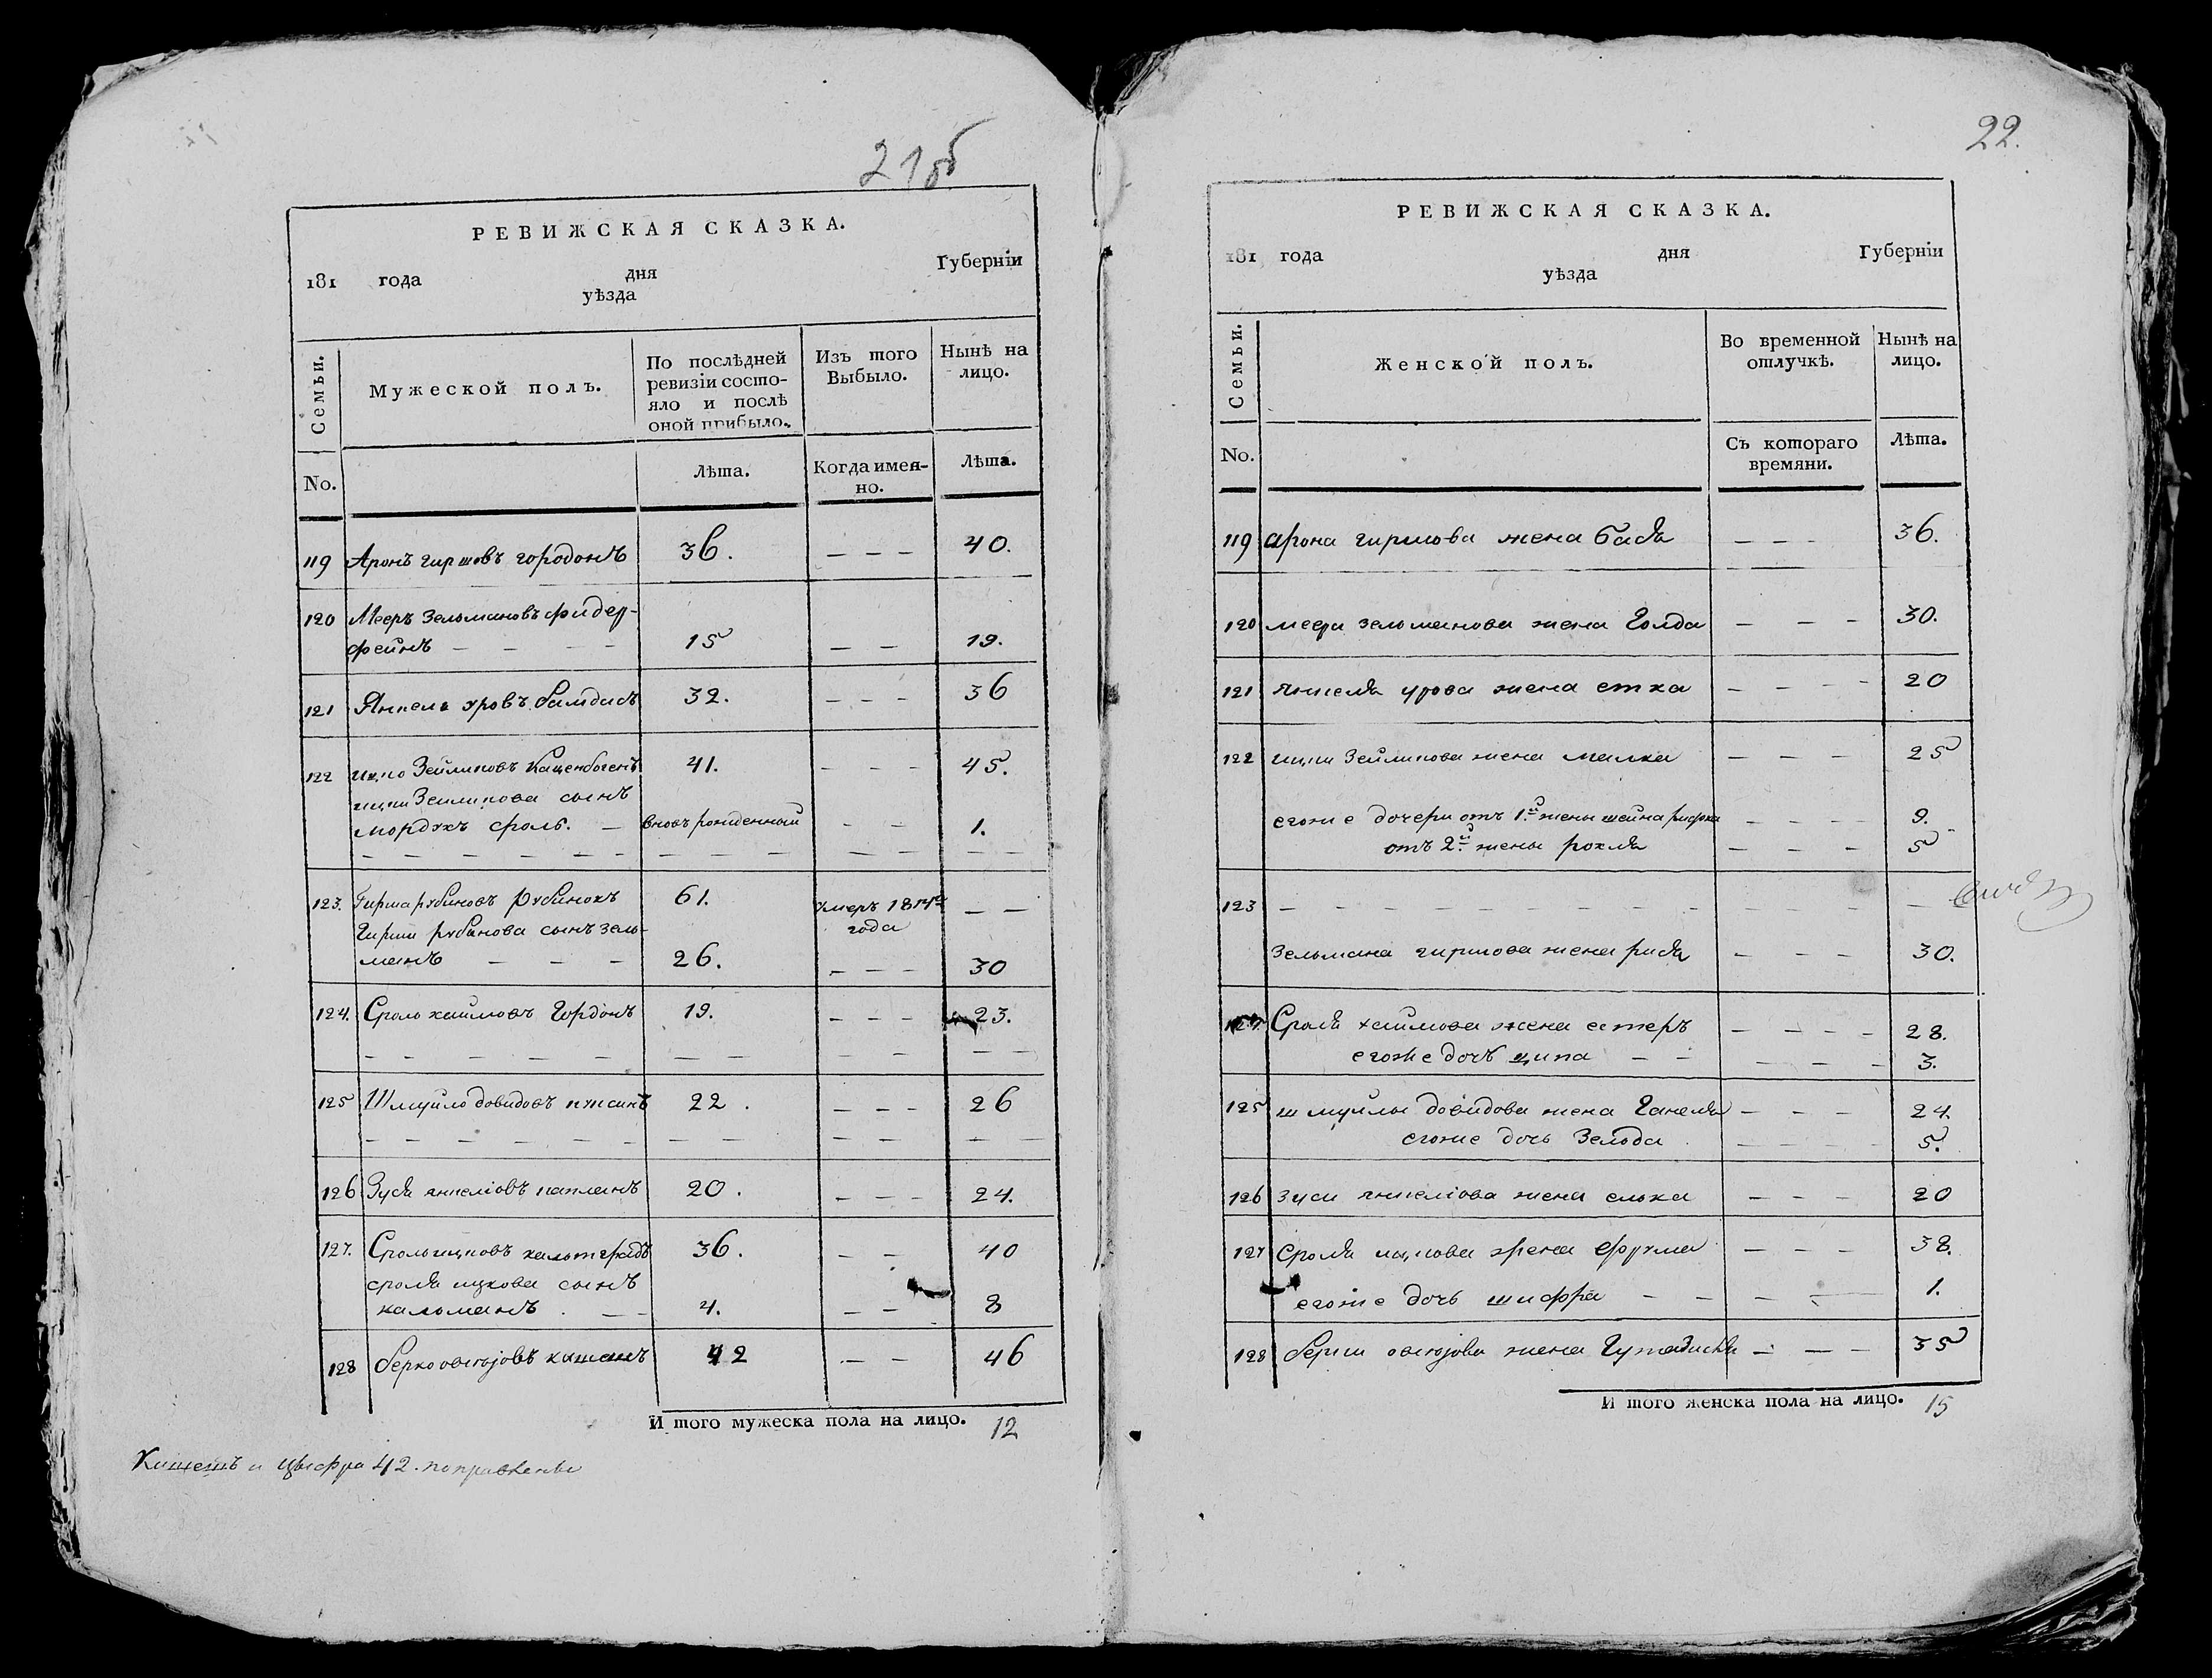 21об
РЕВИЖСКАЯ СКАЗКА.
181 года дня Губерніи
уѣзда
Семьи.
Мужеской полъ.
По послѣдней
ревизіи состо-
яло и послѣ
оной прибыло.
Изъ того
Выбыло.
Нынѣ на
лицо.
No.
Лѣта.
Когда имен-
но.
Лѣта.
119 Аронъ гиршовъ гордонъ 36. — — — 40.
120 Мееръ Зельмановъ фидер-
фейнъ — — — — 15 — — 19.
121 Янкель уровъ 32. — — — 36
122 ицко Зейликовъ Каценбогенъ 41. — — — 45.
ицки Зеиликова сынъ
мордухъ сроль. — вновь рожденный — — 1.
123. Гирша рубиновъ рубинокъ 61. умеръ 1814го — —
года
Гирши рубинова сынъ Зель-
манъ — — — 26. — — — 30
124. Сроль хаимовъ Гордонъ 19. — — — 23.
125 Шмуйло довидовъ 22. — — — 26
126 Зуся янкеліовъ капланъ 20. — — — 24.
127. Сроль ицковъ 36. — — 40
сроля ицкова сынъ
кальманъ. — — 4. — — 8
128 берко 42 — — 46
И того мужеска пола на лицо. 12
и цыфра 42. поправлены
22.
РЕВИЖСКАЯ СКАЗКА.
181 года дня Губерніи
уѣзда
Семьи.
Женской полъ.
Во временной
отлучкѣ.
Нынѣ на
лицо.
No.
Съ котораго
времяни.
Лѣта.
119 арона гиршова жена бася — — — 36.
120 меера зельманова жена Голда — — — 30.
121 янкеля урова жена етка — — — — 20
122 ицки Зейликова жена малка — — — 25
егоже дочери отъ 1.й жены шейна рифка — — — — 9.
отъ 2.й жены рохля — — — 5
123 — — — — — — — — — — — —
зельмана гиршова жена рися — — — 30.
124. Сроля хаимова жена естеръ — — — — 28.
егоже дочь ципа — — — — — — 3.
125 шмуйлы довидова жена Ганеля — — — 24.
егоже дочь Зелода — — — — 5.
126 зуси янкеліова жена елька — — — 20
127 сроля ицкова жена фрума — — — 38.
егоже дочь шифра — — — — 1.
128 жена — — — 35
И того женска пола на лицо. 15